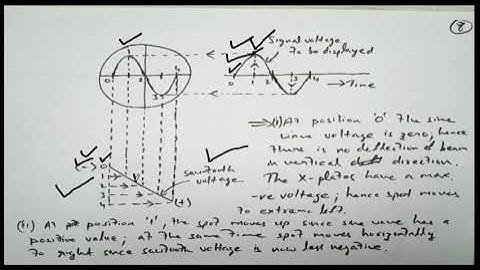 8
Signal voltage
to be displayed
0 1 2 3 4
0 1 2 3 4
→ Time
(-) 0
1
2
3
4
sawtooth
voltage
(+)
⇒ (i) At position '0' the sine
wave voltage is zero; hence
there is no deflection of beam
in vertical direction.
The X-plates have a max.
-ve voltage; hence spot moves
to extreme left.
(ii) At position '1', the spot moves up since sine wave has a
positive value; at the same time spot moves horizontally
to right since sawtooth voltage is now less negative.